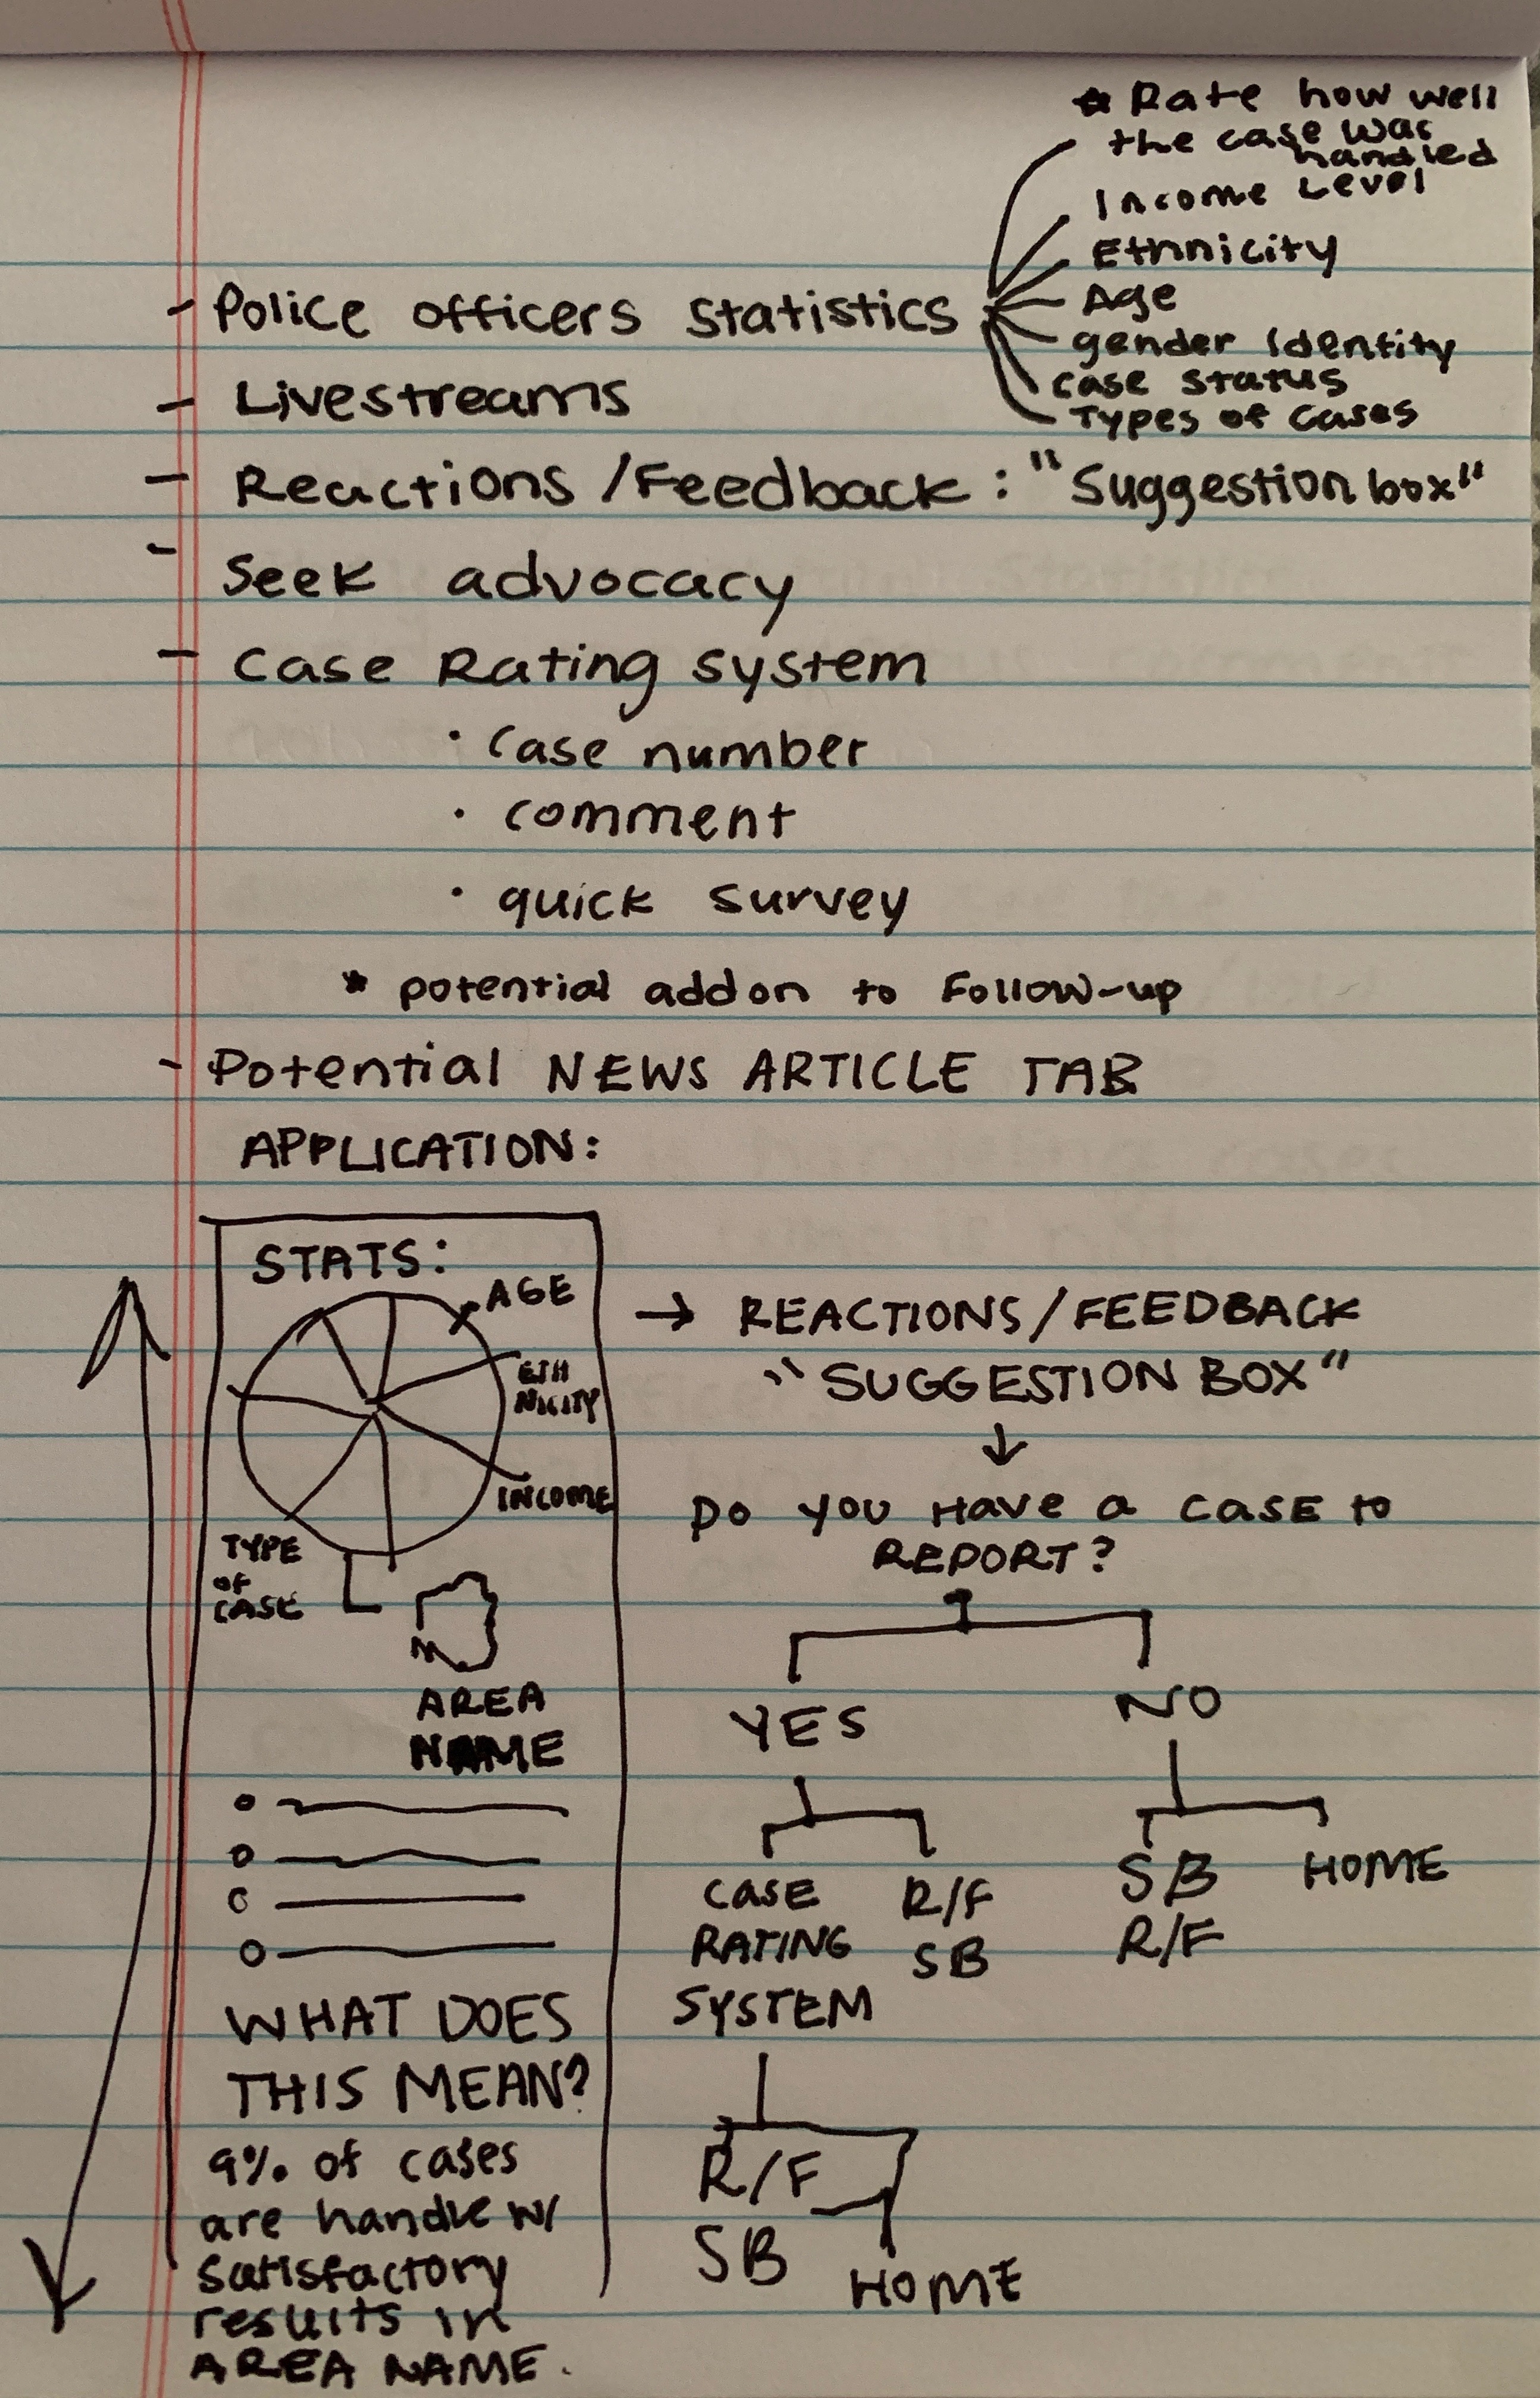 * Rate how well
the case was
handled
Income Level
Ethnicity
- Police officers statistics
Age
gender Identity
case status
Types of cases
- Livestreams
- Reactions /Feedback : "Suggestion box"
- Seek advocacy
- Case Rating system
· case number
· comment
· quick survey
* potential addon to Follow-up
- Potential NEWS ARTICLE TAB
APPLICATION:
STATS:
AGE
ETH
NICITY
INCOME
TYPE
OF
CASE
AREA
NAME
WHAT DOES
THIS MEAN?
9% of cases
are handle w/
satisfactory
results in
AREA NAME.
→ REACTIONS/FEEDBACK
"SUGGESTION BOX"
↓
DO YOU HAVE a CASE to
REPORT?
YES
NO
CASE
RATING
SYSTEM
R/F
SB
SB
R/F
HOME
R/F
SB
HOME